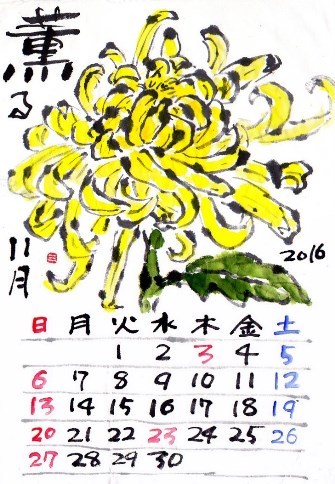 薫る
11月
2016
日 月 火 水 木 金 土
1 2 3 4 5
6 7 8 9 10 11 12
13 14 15 16 17 18 19
20 21 22 23 24 25 26
27 28 29 30